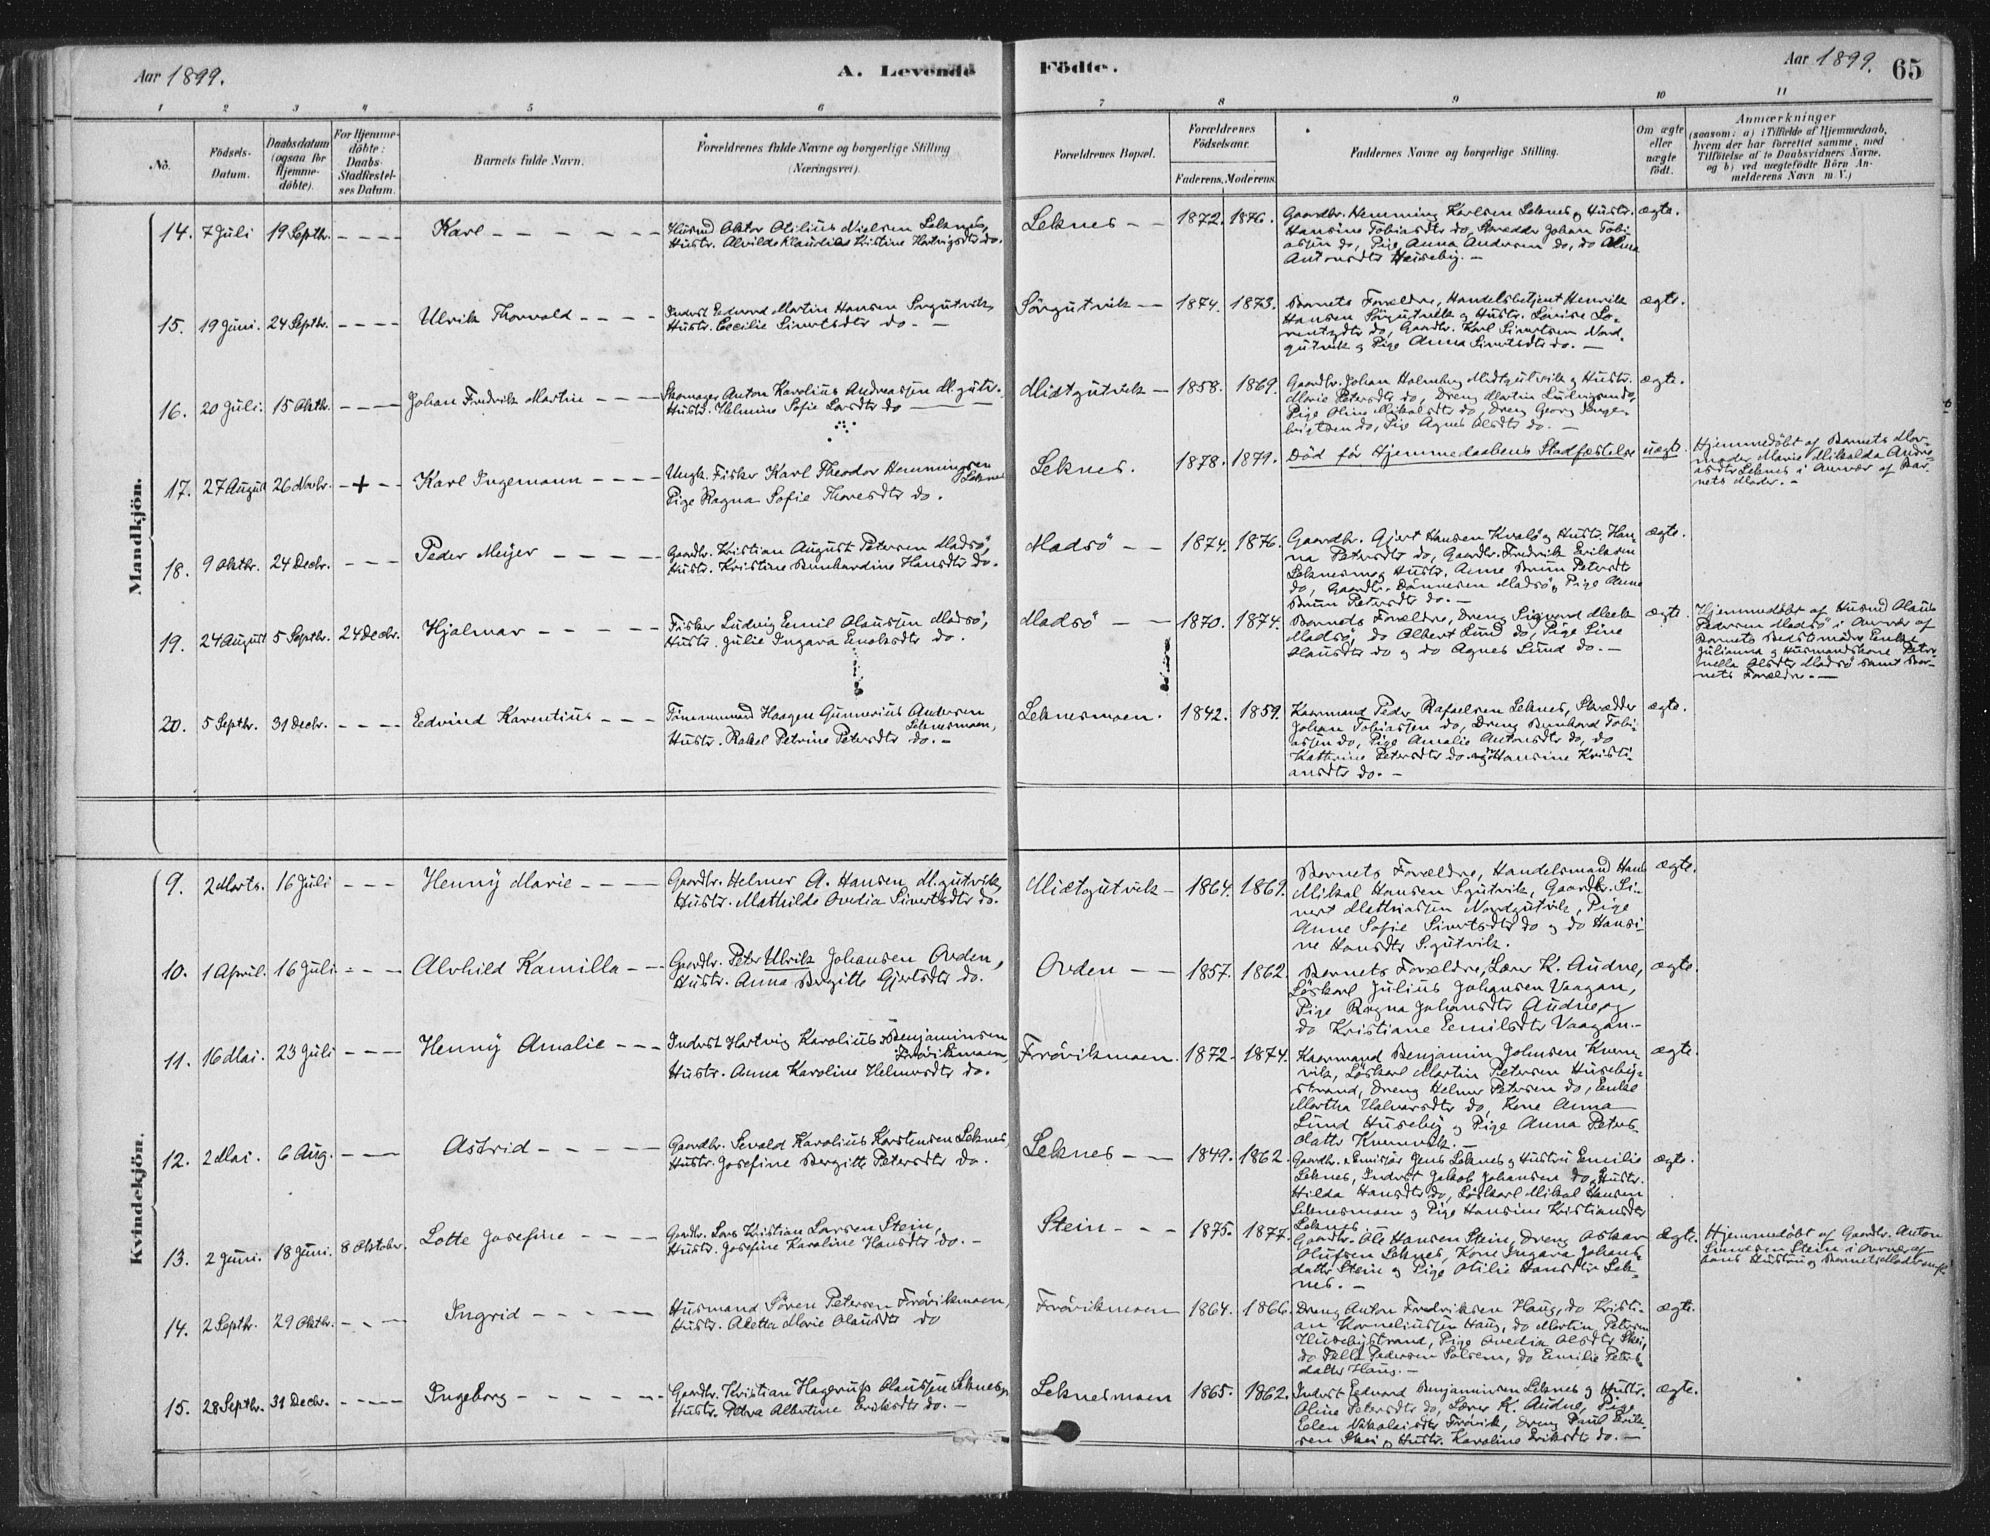 Aar 1899.
A. Levende
Födte.
Aar 1899.
65
1 2 3 4 5 6 7 8 9 10 11
No.
Födsels-
Datum.
Daabsdatum
(ogsaa for
Hjemme-
döbte).
For Hjemme-
döbte:
Daabs-
Stadfæstel-
ses Datum.
Barnets fulde Navn.
Forældrenes fulde Navne og borgerlige Stilling
(Næringsvei).
Forældrenes Bopæl.
Forældrenes
Födselsaar.
Faderens. Moderens.
Faddernes Navne og borgerlige Stilling.
Om ægte
eller
uægte
födt.
Anmærkninger
(saasom: a) i Tilfælde af Hjemmedaab,
hvem der har forrettet samme, med
Tilföielse af to Daabsvidners Navne,
og b) ved uægtefödte Börn An-
melderens Navn m. V.)
Mandkjön.
14. 7 Juli 19 Septbr. Karl
Husmd Oktor Otilius Nielsen Leknes,
Hustr. Alvilde Klaudia Kristine Hartvigsdtr do.
Leknes 1872. 1876.
Gaardbr. Hemming Karlsen Leknes og Hustr.
Hansine Tobiasdtr do, Skrædder Johan Tobi-
assen do, Pige Anna Andersen do, do Alma
Antonsdtr Huseby.
ægte.
15. 19 Juni. 24 Septbr. Ulrik Thorvald
Inderst Edvard Martin Hansen Sørgutvik,
Hustr. Cecilie Sivertsdtr do.
Sørgutvik 1874. 1873.
Barnets Forældre, Handelsbetjent Henrik
Hansen Sørgutvik og Hustr. Lovise Lo-
rentzdtr do, Gaardbr. Karl Sivertsen Nord-
gutvik og Pige Anna Sivertsdtr do.
ægte.
16. 20 Juli. 15 Oktbr. Johan Fredrik Martin
Skomager Anton Karolius Andreassen M.gutv.
Hustr. Helmine Sofie Larsdtr do
Midtgutvik 1858. 1869.
Gaardbr. Johan Holmberg Midtgutvik og Hustr.
Marie Petersdtr do, Dreng Martin Ludvigsen do,
Pige Oline Mikalsdtr do, Dreng Georg Inge-
brigtsen do, Pige Agnes Olsdtr do.
ægte.
17. 27 August 26 Novbr. + Karl Ingemann
Ungk. Fisker Karl Theodor Hemmingsen
Leknes
Pige Ragna Sofie Thoresdtr do.
Leknes. 1878. 1879.
Död før Hjemmedaabens Stadfæstelse
uægte.
Hjemmedøbt af Barnets Mor-
moder Marie Mikalda Andre-
asdtr Leknes i Overvær af Bar-
nets Moder.
18. 9 Oktbr. 24 Decbr. Peder Meyer
Gaardbr. Kristian August Petersen Madsø,
Hustr. Kristine Bernhardine Hansdtr do.
Madsø 1874. 1876.
Gaardbr. Gjert Hansen Kvalø og Hustr. Han-
na Petersdtr do, Gaardbr. Fredrik Eriksen
Leknesmo og Hustr. Anne Brun Petersdtr
do, Gaardbr. Dønnesen Madsø, Pige Anne
Brun Petersdtr do.
ægte.
19. 24 August 5 Septbr. 24 Decbr. Hjalmar
Fisker Ludvig Emil Olaussen Madsø,
Hustr. Julie Ingara Enoksdtr do.
Madsø 1870. 1874.
Barnets Forældre, Dreng Sigvard Meek
Madsø, do Albert Lund do, Pige Line
Olausdtr do og do Agnes Lund do.
ægte.
Hjemmedøbt af Husmd Olaus
Pedersen Madsø i Overvær af
Barnets Bedstemoder Enke
Julianna og Husmandskone Peter-
nella Olsdtr Madsø samt Bar-
nets Forældre.
20. 5 Septbr. 31 Decbr. Edvind Karentius
Tømmermand Haagen Gunnerius Andersen
Leknesmoen,
Hustr. Rakel Petrine Petersdtr do.
Leknesmoen. 1842. 1859.
Kaarmand Peder Rafaelsen Leknes, Skrædder
Johan Tobiassen do, Dreng Bernhard Tobi-
assen do, Pige Amalie Antonsdtr do, do
Kathrine Petersdtr do og Hansine Kristi-
ansdtr do.
ægte.
Kvindekjön.
9. 2 Marts. 16 Juli Henny Marie
Gaardbr. Helmer A. Hansen M.gutvik,
Hustr. Mathilde Ovedia Sivertsdtr do.
Midtgutvik 1864. 1869.
Barnets Forældre, Handelsmand Hans
Mikal Hansen S.gutvik, Gaardbr. Si-
vert Mathiassen Nordgutvik, Pige
Anne Sofie Sivertsdtr do og do Hansi-
ne Hansdtr S.gutvik.
ægte.
10. 1 April. 16 Juli Alvhild Kamilla
Gaardbr. Peter Ulrik Johansen Ovden,
Hustr. Anna Bergitte Gjertsdtr do.
Ovden 1857. 1862
Barnets Forældre, Lærer K. Audne,
Løskarl Julius Johansen Vaagan,
Pige Ragna Johansdtr Audne, og
do Kristiane Emilsdtr Vaagan.
ægte.
11. 16 Mai. 23 Juli Henny Amalie
Inderst Hartvig Karolius Benjaminsen
Frøvikmoen,
Hustr. Anna Karoline Helmersdtr do.
Frøvikmoen. 1872. 1874.
Kaarmand Benjamin Johnsen Kvern-
vik, Løskarl Martin Petersen Huseby-
strand, Dreng Helmer Petersen do, Enke
Martha Halvarsdtr do, Kone Anna
Lund Huseby og Pige Anna Peters-
datter Kvernvik.
ægte.
12. 2 Mai. 6 Aug. Astrid
Gaardbr. Sevald Karolius Karstensen Leknes,
Hustr. Josefine Bergitte Petersdtr do.
Leknes 1849. 1862.
Gaardbr. Emisær Jens Leknes og Hustru Emilie
Leknes, Inderst Jakob Johansen do, Hustr.
Hilda Hansdtr do, Løskarl Mikal Hansen
Leknesmoen og Pige Hansine Kristiansdtr
Leknes
ægte.
13. 2 Juni. 18 Juni. 8 Oktober. Lotte Josefine
Gaardbr. Lars Kristian Larsen Stein,
Hustr. Josefine Karoline Hansdtr do.
Stein 1875. 1877.
Gaardbr. Ole Hansen Stein, Dreng Oskar
Olufsen Leknes, Kone Ingara Johans-
datter Stein og Pige Otilie Hansdtr Lek-
nes.
ægte.
Hjemmedøbt af Gaardbr. Anton
Stein i Overvær af
hans Hustru og Barnets
14. 2 Septbr. 29 Oktbr. Ingrid
Husmand Søren Petersen Frøvikmoen,
Hustr. Aletta Marie Olausdtr do
Frøvikmoen 1864. 1866.
Dreng Anton Fredriksen Haug, do Kristi-
an Korneliussen Haug, do Martin Petersen
Husebystrand, Pige Ovedia Olsdtr Skei,
do Pedersen Solsem, do Emilie Peters-
datter Haug.
ægte.
15. 28 Septbr. 31 Decbr. Ingeborg
Gaardbr. Kristian Hagerup Olaussen Leknes,
Hustr. Petra Albertine Eriksdtr do.
Leknesmoen 1865. 1862.
Inderst Edvard Benjaminsen Leknes og Hustr.
Oline Petersdtr do, Lærer K. Audne, Pige
Elen Nikolaisdtr Frøvik, Dreng Paul Erik-
sen Skei og Hustr. Karoline Eriksdtr do.
ægte.